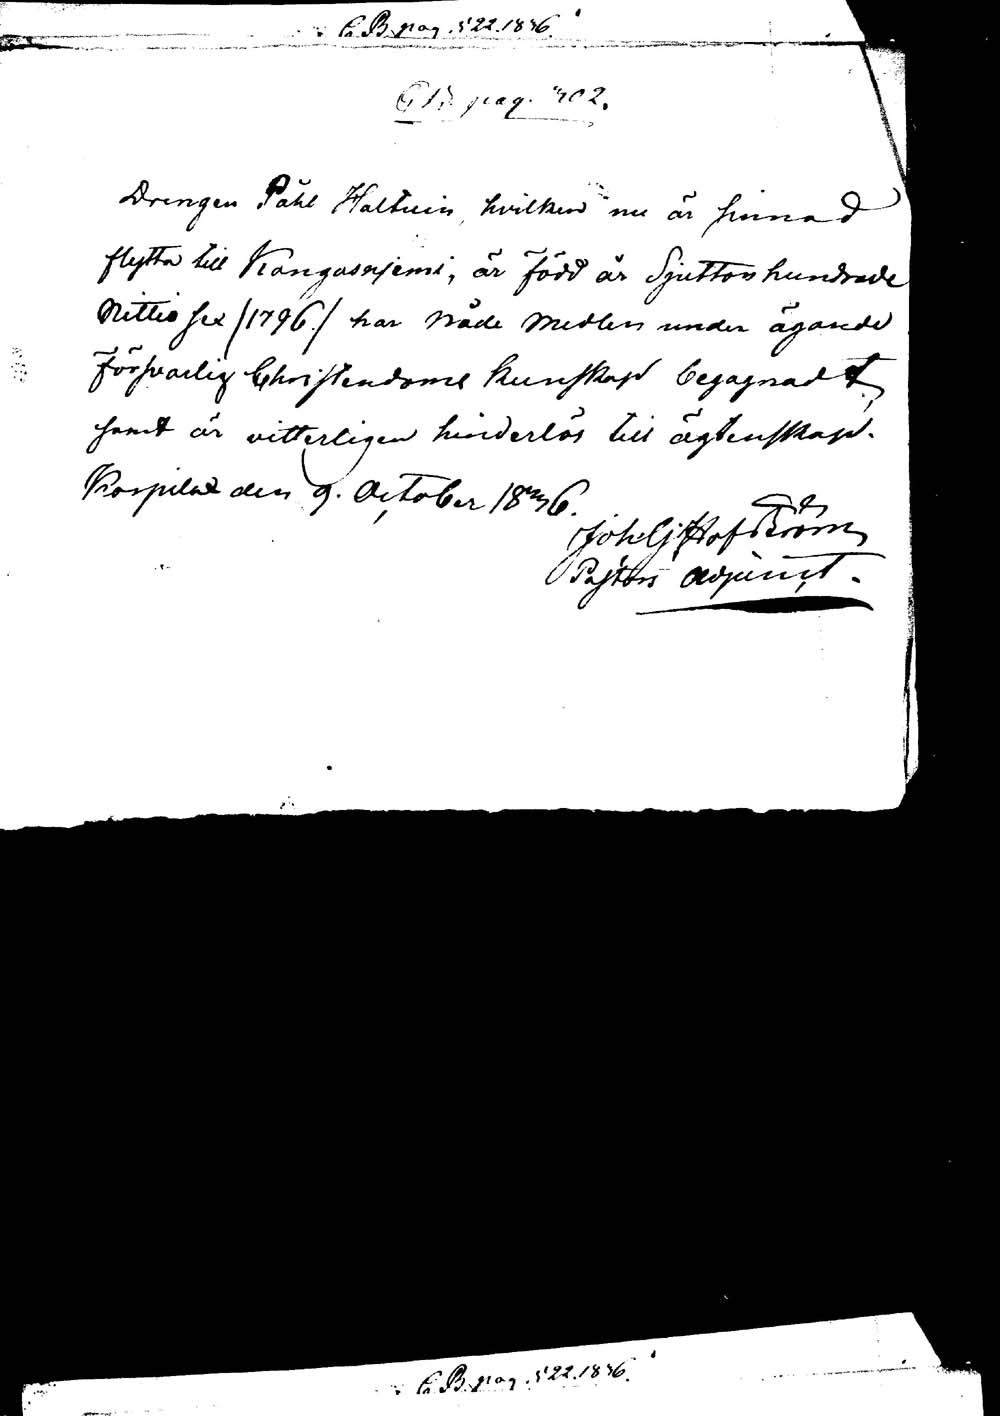 C. B. pag. 522. 1836.
C B. pag. 402.
Drengen Påhl Haltuin, hvilken nu är sinnad
flytta till Kangasnjemi, är född år Sjuttonhundrade
Nittiosex /1796./ har Nåde Medlen under ägande
försvarlig Christendoms kunskap begagnadt,
samt är vitterligen hinderlös till ägtenskap.
den 9. October 1836.
Joh. G. Hofström
Pastors Adjunct.
C. B. pag. 522. 1836.